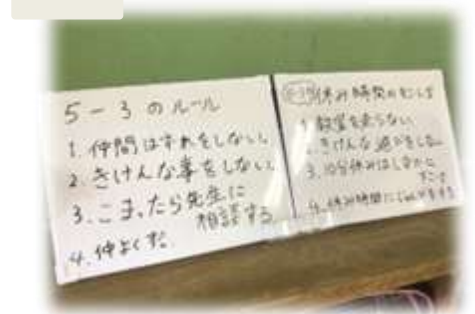 5-3のルール
1.仲間はずれをしない。
2.きけんな事をしない。
3.こまったら先生に
相談する
4.仲よくする
休み時間の
1.教室を走らない
2.きけんな遊びをしない
3.10分休みはしずかに
4.休み時間に